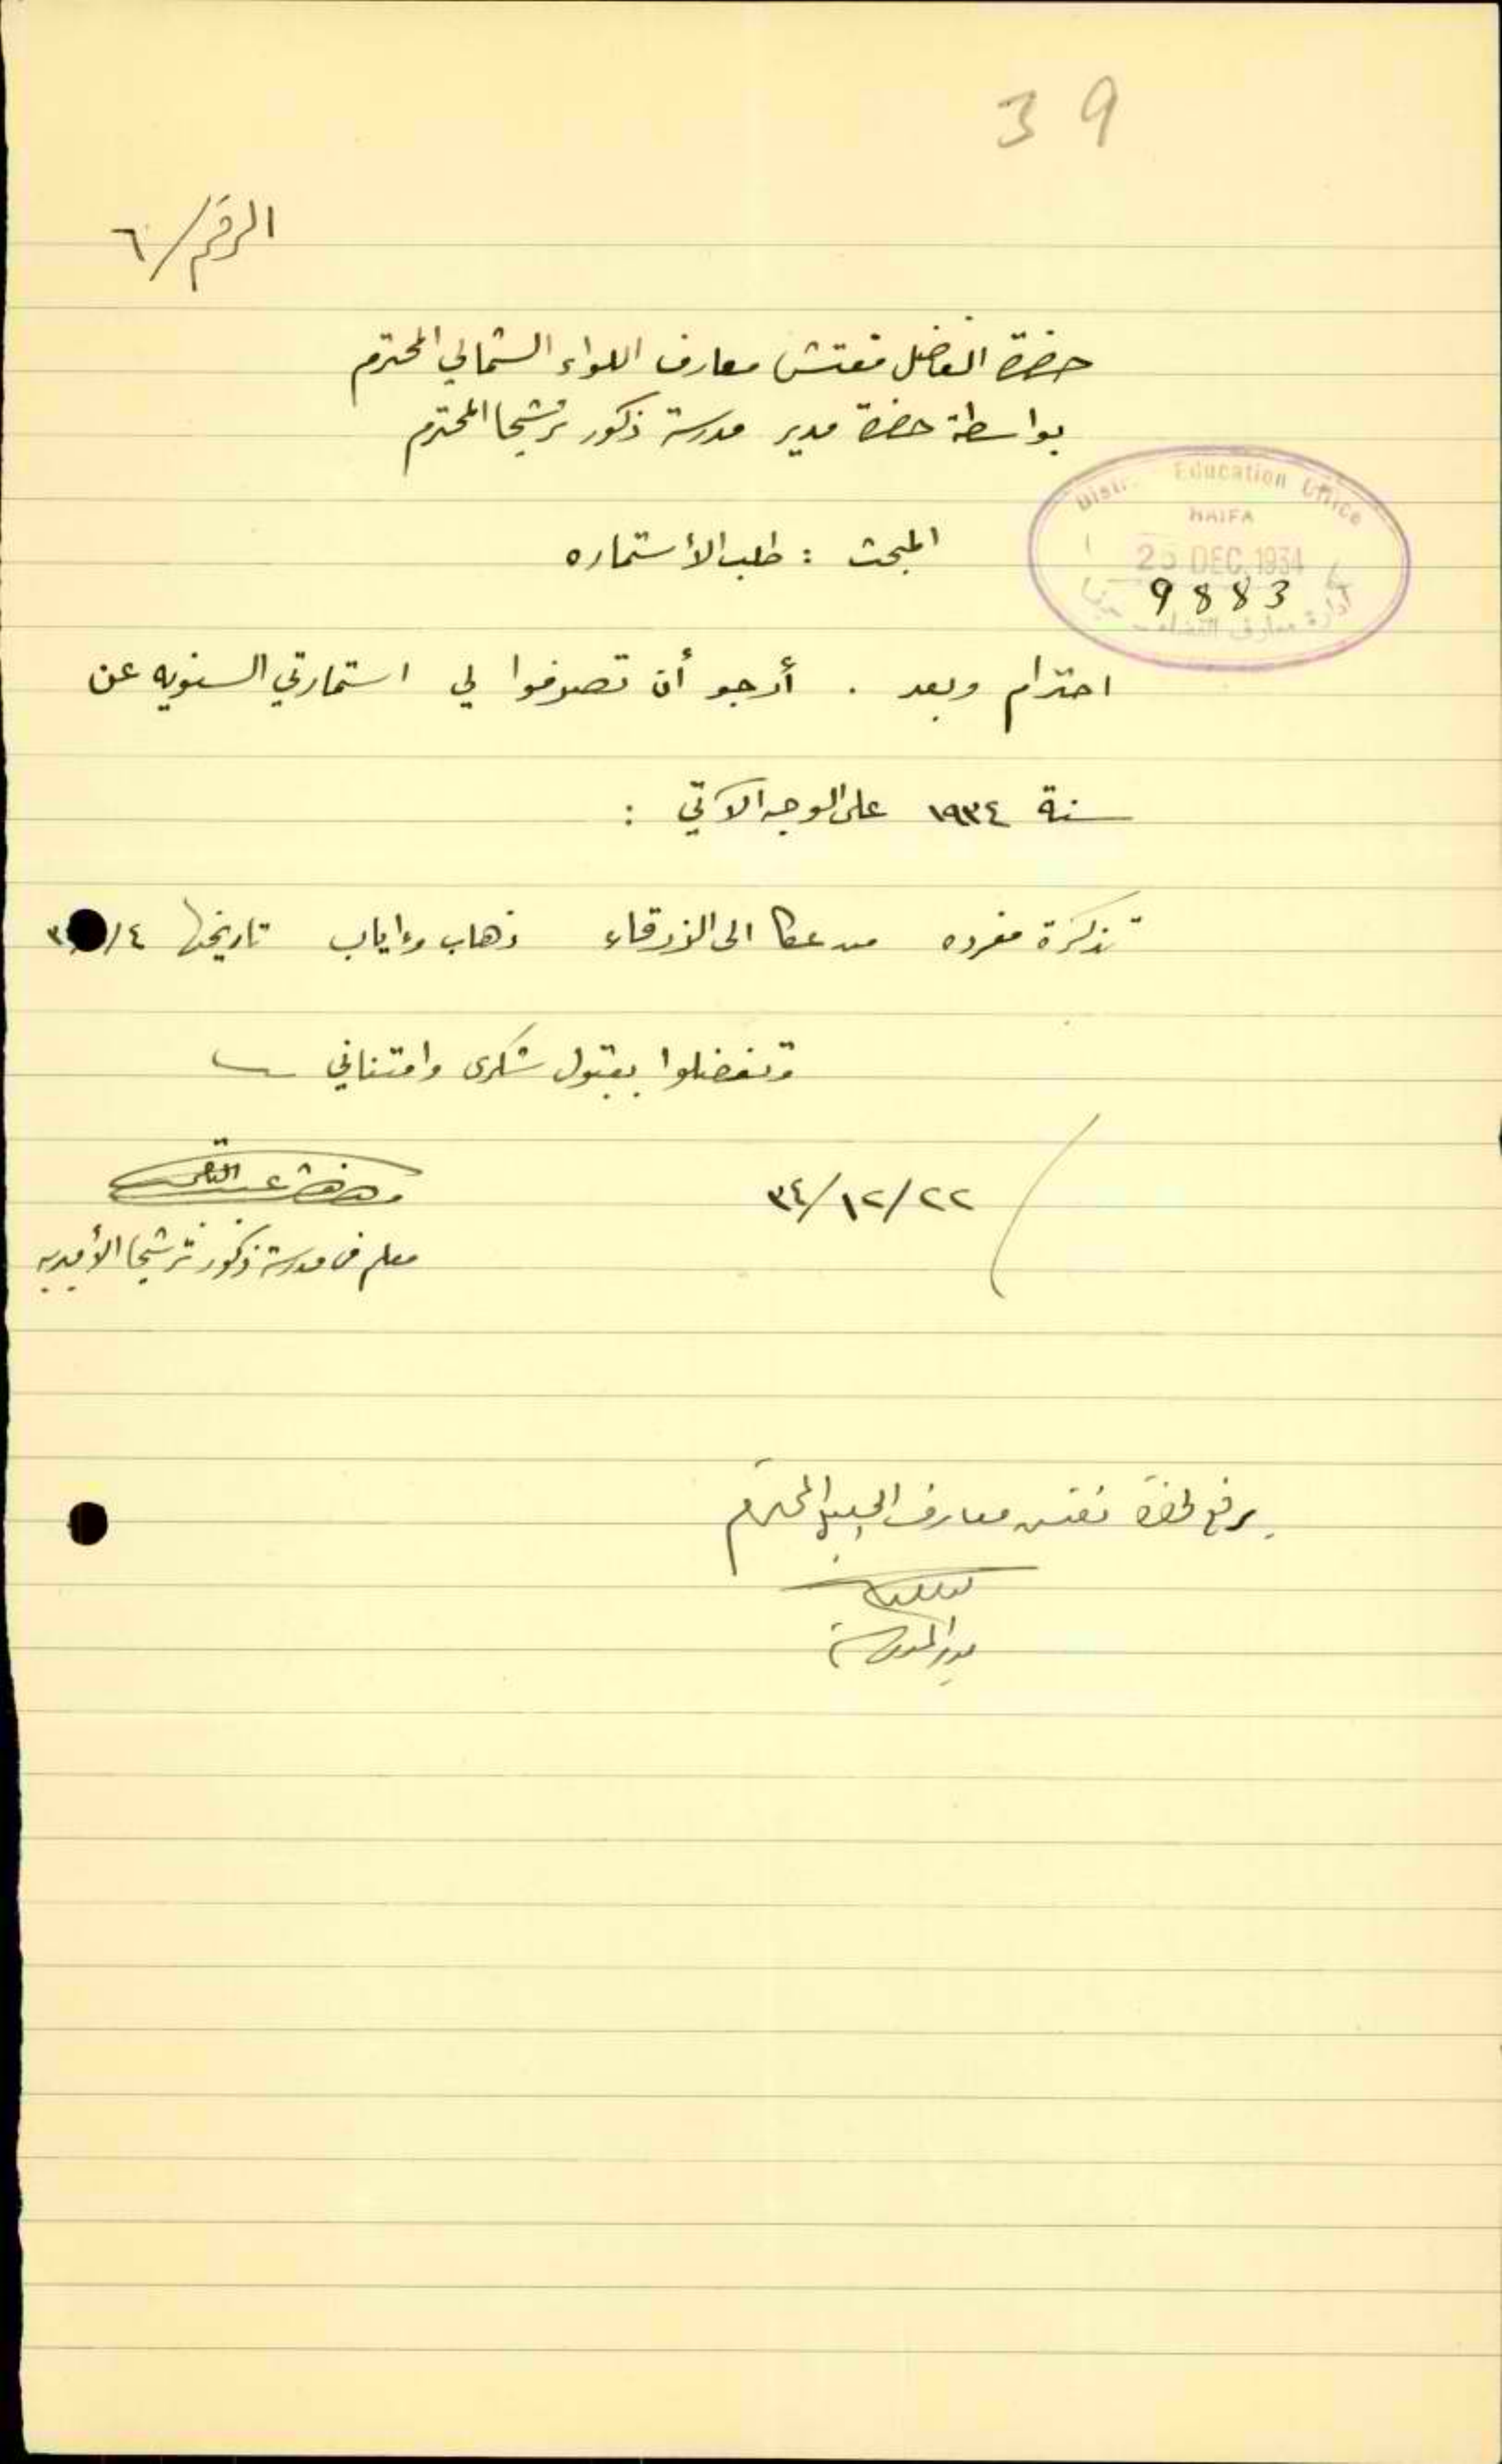 39
الرقم/٦
حضرة الفاضل مفتش معارف اللواء الشمالي المحترم
بواسطة حضرة مدير مدرسة ذكور ترشيحا المحترم
Education Office
HAIFA
DEC. 1934
9883
المبحث : طلب الأستماره
احترام وبعد . أرجو أن تصرفوا لي استمارتي السنويه عن
سنة ١٩٣٤ على الوجه الآتي :
تذكرة مفرده من عكا الى الزرقاء ذهاب واياب تاريخها
وتفضلوا بقبول شكرى وامتناني
٣٤/١٢/٢٢
معلم في مدرسة ذكور ترشيحا الأميريه
يرفع لحضرة مفتش معارف المحترم
مدير المدرسة